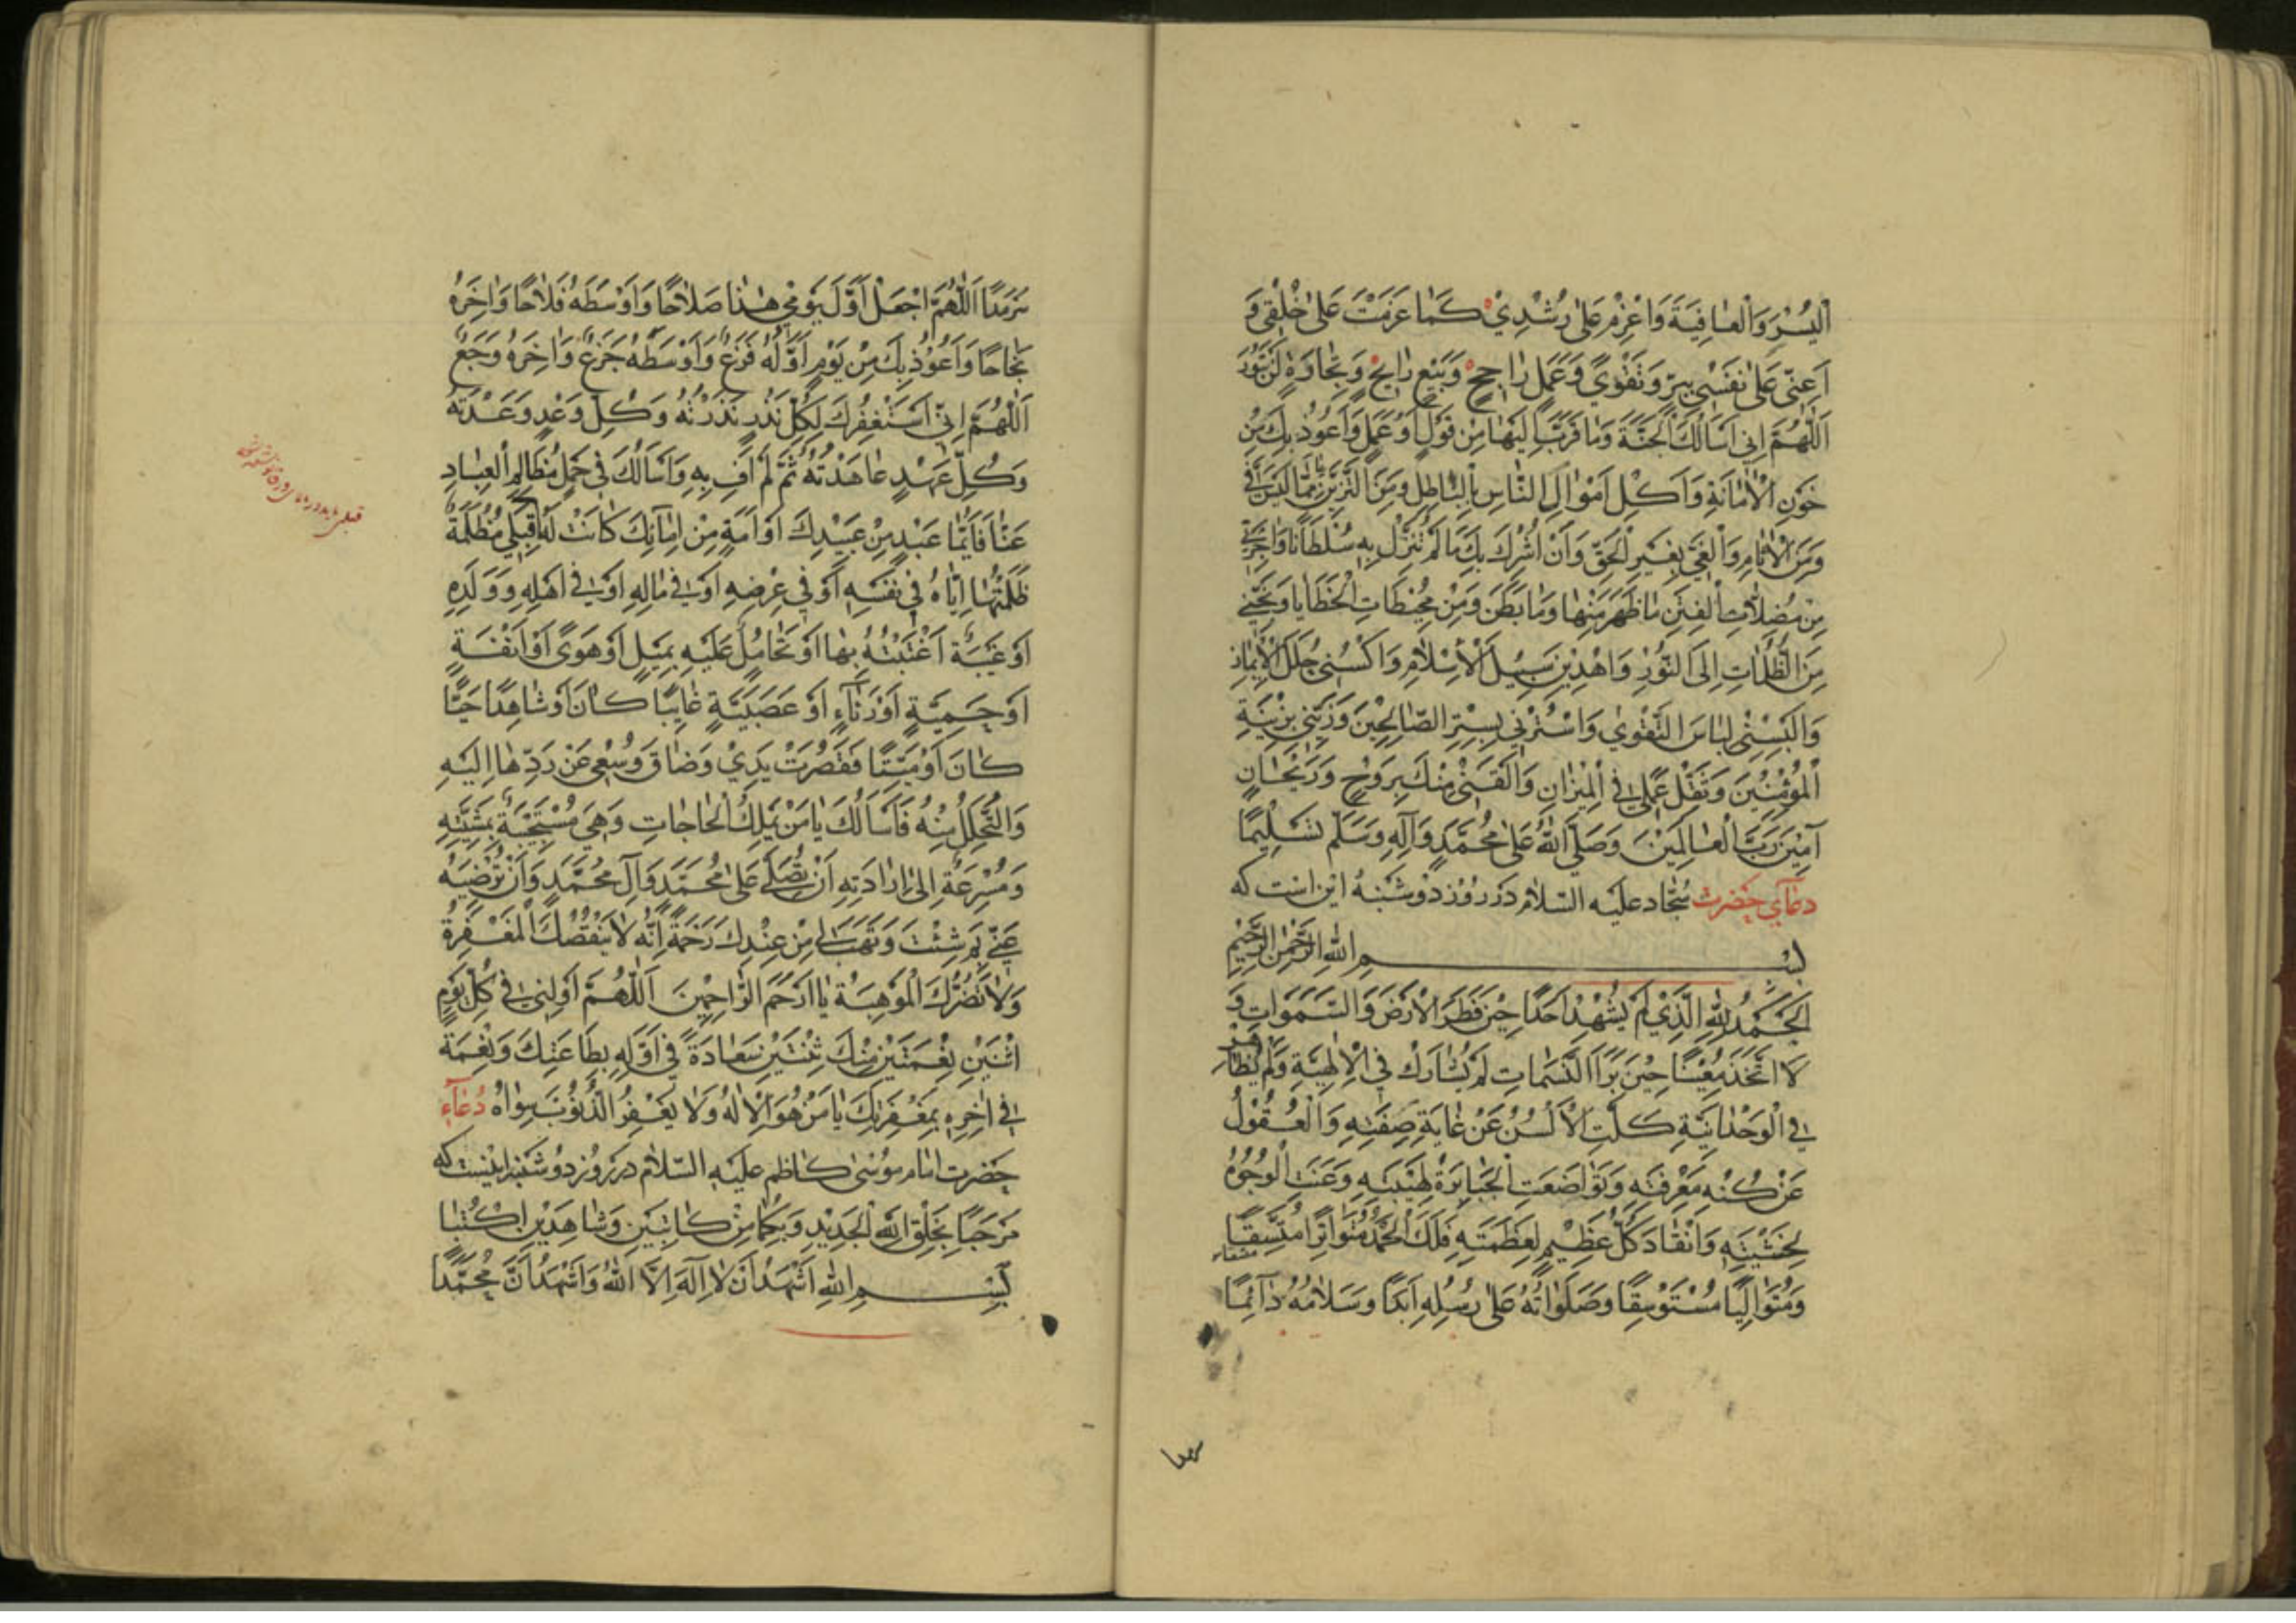 اَلْیُسْرَ وَالْعافِیَةَ وَاعْزِمْ عَلیٰ رُشْدِيْ کَمٰا عَزَمْتَ عَلیٰ خَلْقِی وَ
اَعِنّی عَلیٰ نَفْسْی بِبِرٍّ وَتَقْویً وَعَمَلٍ رٰاجِحٍ وَبَیْعٍ رٰابِحٍ وَتِجٰارَةٍ لَنْ تَبُوْرَ
اَللّٰهُمَّ اِنی اَسْاَلُکَ الْجَنَّةَ وَمٰا قَرَّبَ اِلَیْهٰا مِنْ قَوْلٍ اَوْ عَمَلٍ وَاَعُوْذُ بِكَ مِنْ
خَوْنِ الْاَمٰانَةِ وَاَکْلِ اَمْوٰالِ النّٰاسِ بِالْبٰاطِلِ وَمِنَ التَّزَیُّنِ بِمٰا لَیْسَ فِیَّ
وَمِنَ الْاٰثٰامِ وَالْبَغْیِ بِغَیْرِ الْحَقِّ وَاَنْ اُشْرِكَ بِكَ مٰا لَمْ تُنَزِّلْ بِهِ سُلْطٰانًا وَاَجِرْنی
مِنْ مُضِلّٰاتِ الْفِتَنِ مٰا ظَهَرَ مِنْهٰا وَمٰا بَطَنَ وَمِنْ مُحِیْطٰاتِ الْخَطٰایٰا وَنَجِّنی
مِنَ الظُّلُمٰاتِ اِلَی النُّوْرِ وَاهْدِنی سَبِیْلَ الْاِسْلٰامِ وَاکْسُنی حُلَلَ الْاِیْمٰانِ
وَاَلْبِسْنی لِبٰاسَ التَّقْویٰ وَاسْتُرْنی بِسِتْرِ الصّٰالِحِیْنَ وَزَیِّنّی بِزِیْنَةِ
الْمُؤْمِنِیْنَ وَثَقِّلْ عَمَلی فِی الْمِیْزٰانِ وَاَلْقِنی مِنْكَ بِرَوْحٍ وَرَیْحٰانٍ
آمِیْنَ رَبَّ الْعٰالَمِیْنَ وَصَلَّی اللّٰهُ عَلیٰ مُحَمَّدٍ وَآلِهِ وَسَلَّمَ تَسْلِیْمًا
دعٰآیِ حضرت سجّاد علیه السّلام در روز دوشنبه این است که
بِسْمِ اللّٰهِ الرَّحْمٰنِ الرَّحِیْمِ
اَلْحَمْدُ لِلّٰهِ الَّذِيْ لَمْ یُشْهِدْ اَحَدًا حِیْنَ فَطَرَ الْاَرْضَ وَالسَّمَوٰاتِ وَ
لَا اتَّخَذَ مُعِیْنًا حِیْنَ بَرَأَ النَّسَمٰاتِ لَمْ یُشٰارَكْ فِی الْاِلٰهِیَّةِ وَلَمْ یُظٰاهَرْ
فِی الْوَحْدٰانِیَّةِ کَلَّتِ الْاَلْسُنُ عَنْ غٰایَةِ صِفَتِهِ وَالْعُقُوْلُ
عَنْ کُنْهِ مَعْرِفَتِهِ وَتَوٰاضَعَتِ الْجَبٰابِرَةُ لِهَیْبَتِهِ وَعَنَتِ الْوُجُوْهُ
لِخَشْیَتِهِ وَانْقٰادَ کُلُّ عَظِیْمٍ لِعَظَمَتِهِ فَلَكَ الْحَمْدُ مُتَوٰاتِرًا مُتَّسِقًا
وَمُتَوٰالِیًا مُسْتَوْسِقًا وَصَلَوٰاتُهُ عَلیٰ رُسُلِهِ اَبَدًا وَسَلٰامُهُ دٰآئِمًا
سَرْمَدًا اَللّٰهُمَّ اجْعَلْ اَوَّلَ یَوْمِی هٰذٰا صَلٰاحًا وَاَوْسَطَهُ فَلٰاحًا وَاٰخِرَهُ
نَجٰاحًا وَاَعُوْذُ بِكَ مِنْ یَوْمٍ اَوَّلُهُ فَزَعٌ وَاَوْسَطُهُ جَزَعٌ وَاٰخِرُهُ وَجَعٌ
اَللّٰهُمَّ اِنّی اَسْتَغْفِرُكَ لِکُلِّ نَذْرٍ نَذَرْتُهُ وَکُلِّ وَعْدٍ وَعَدْتُهُ
وَکُلِّ عَهْدٍ عٰاهَدْتُهُ ثُمَّ لَمْ اَفِ بِهِ وَاَسْاَلُكَ فی حَمْلِ مَظٰالِمِ الْعِبٰادِ
عَنّٰا فَاَیُّمٰا عَبْدٍ مِنْ عَبِیْدِكَ اَوْ اَمَةٍ مِنْ اِمٰآئِكَ کٰانَتْ لَهُ قِبَلی مَظْلَمَةٌ
ظَلَمْتُهٰا اِیّٰاهُ فی نَفْسِهِ اَوْ فی عِرْضِهِ اَوْ فی مٰالِهِ اَوْ فی اَهْلِهِ وَوَلَدِهِ
اَوْ غَیْبَةٌ اغْتَبْتُهُ بِهٰا اَوْ تَحٰامُلٌ عَلَیْهِ بِمَیْلٍ اَوْ هَوًی اَوْ اَنَفَةٍ
اَوْ حَمِیَّةٍ اَوْ رِئٰآءٍ اَوْ عَصَبِیَّةٍ غٰایِبًا کٰانَ اَوْ شٰاهِدًا حَیًّا
کٰانَ اَوْ مَیِّتًا فَقَصُرَتْ یَدِيْ وَضٰاقَ وُسْعِی عَنْ رَدِّهٰا اِلَیْهِ
وَالتَّحَلُّلِ مِنْهُ فَاَسْاَلُكَ یٰا مَنْ یَمْلِكُ الْحٰاجٰاتِ وَهِیَ مُسْتَجِیْبَةٌ بِمَشِیَّتِهِ
وَمُسْرِعَةٌ اِلیٰ اِرٰادَتِهِ اَنْ تُصَلِّیَ عَلیٰ مُحَمَّدٍ وَآلِ مُحَمَّدٍ وَاَنْ تُرْضِیَهُ
عَنّی بِمَ شِئْتَ وَتَهَبَ لی مِنْ عِنْدِكَ رَحْمَةً اِنَّهُ لٰا یَنْقُصُكَ الْمَغْفِرَةُ
وَلٰا تَضُرُّكَ الْمَوْهِبَةُ یٰا اَرْحَمَ الرّٰاحِمِیْنَ اَللّٰهُمَّ اَوْلِنی فی کُلِّ یَوْمِ
اثْنَیْنِ نِعْمَتَیْنِ مِنْكَ ثِنْتَیْنِ سَعٰادَةً فی اَوَّلِهِ بِطٰاعَتِكَ وَنِعْمَةً
فی اٰخِرِهِ بِمَغْفِرَتِكَ یٰا مَنْ هُوَ الْاِلٰهُ وَلٰا یَغْفِرُ الذُّنُوْبَ سِوٰاهُ دُعٰآءِ
حضرت امٰام موسیٰ کٰاظم علیه السّلام در روز دوشنبه اینست که
مَرْحَبًا بِخَلْقِ اللّٰهِ الْجَدِیْدِ وَبِکُمٰا مِنْ کٰاتِبَیْنِ وَشٰاهِدَیْنِ اکْتُبٰا
بِسْمِ اللّٰهِ اَشْهَدُ اَنْ لٰا اِلٰهَ اِلَّا اللّٰهُ وَاَشْهَدُ اَنَّ مُحَمَّدًا